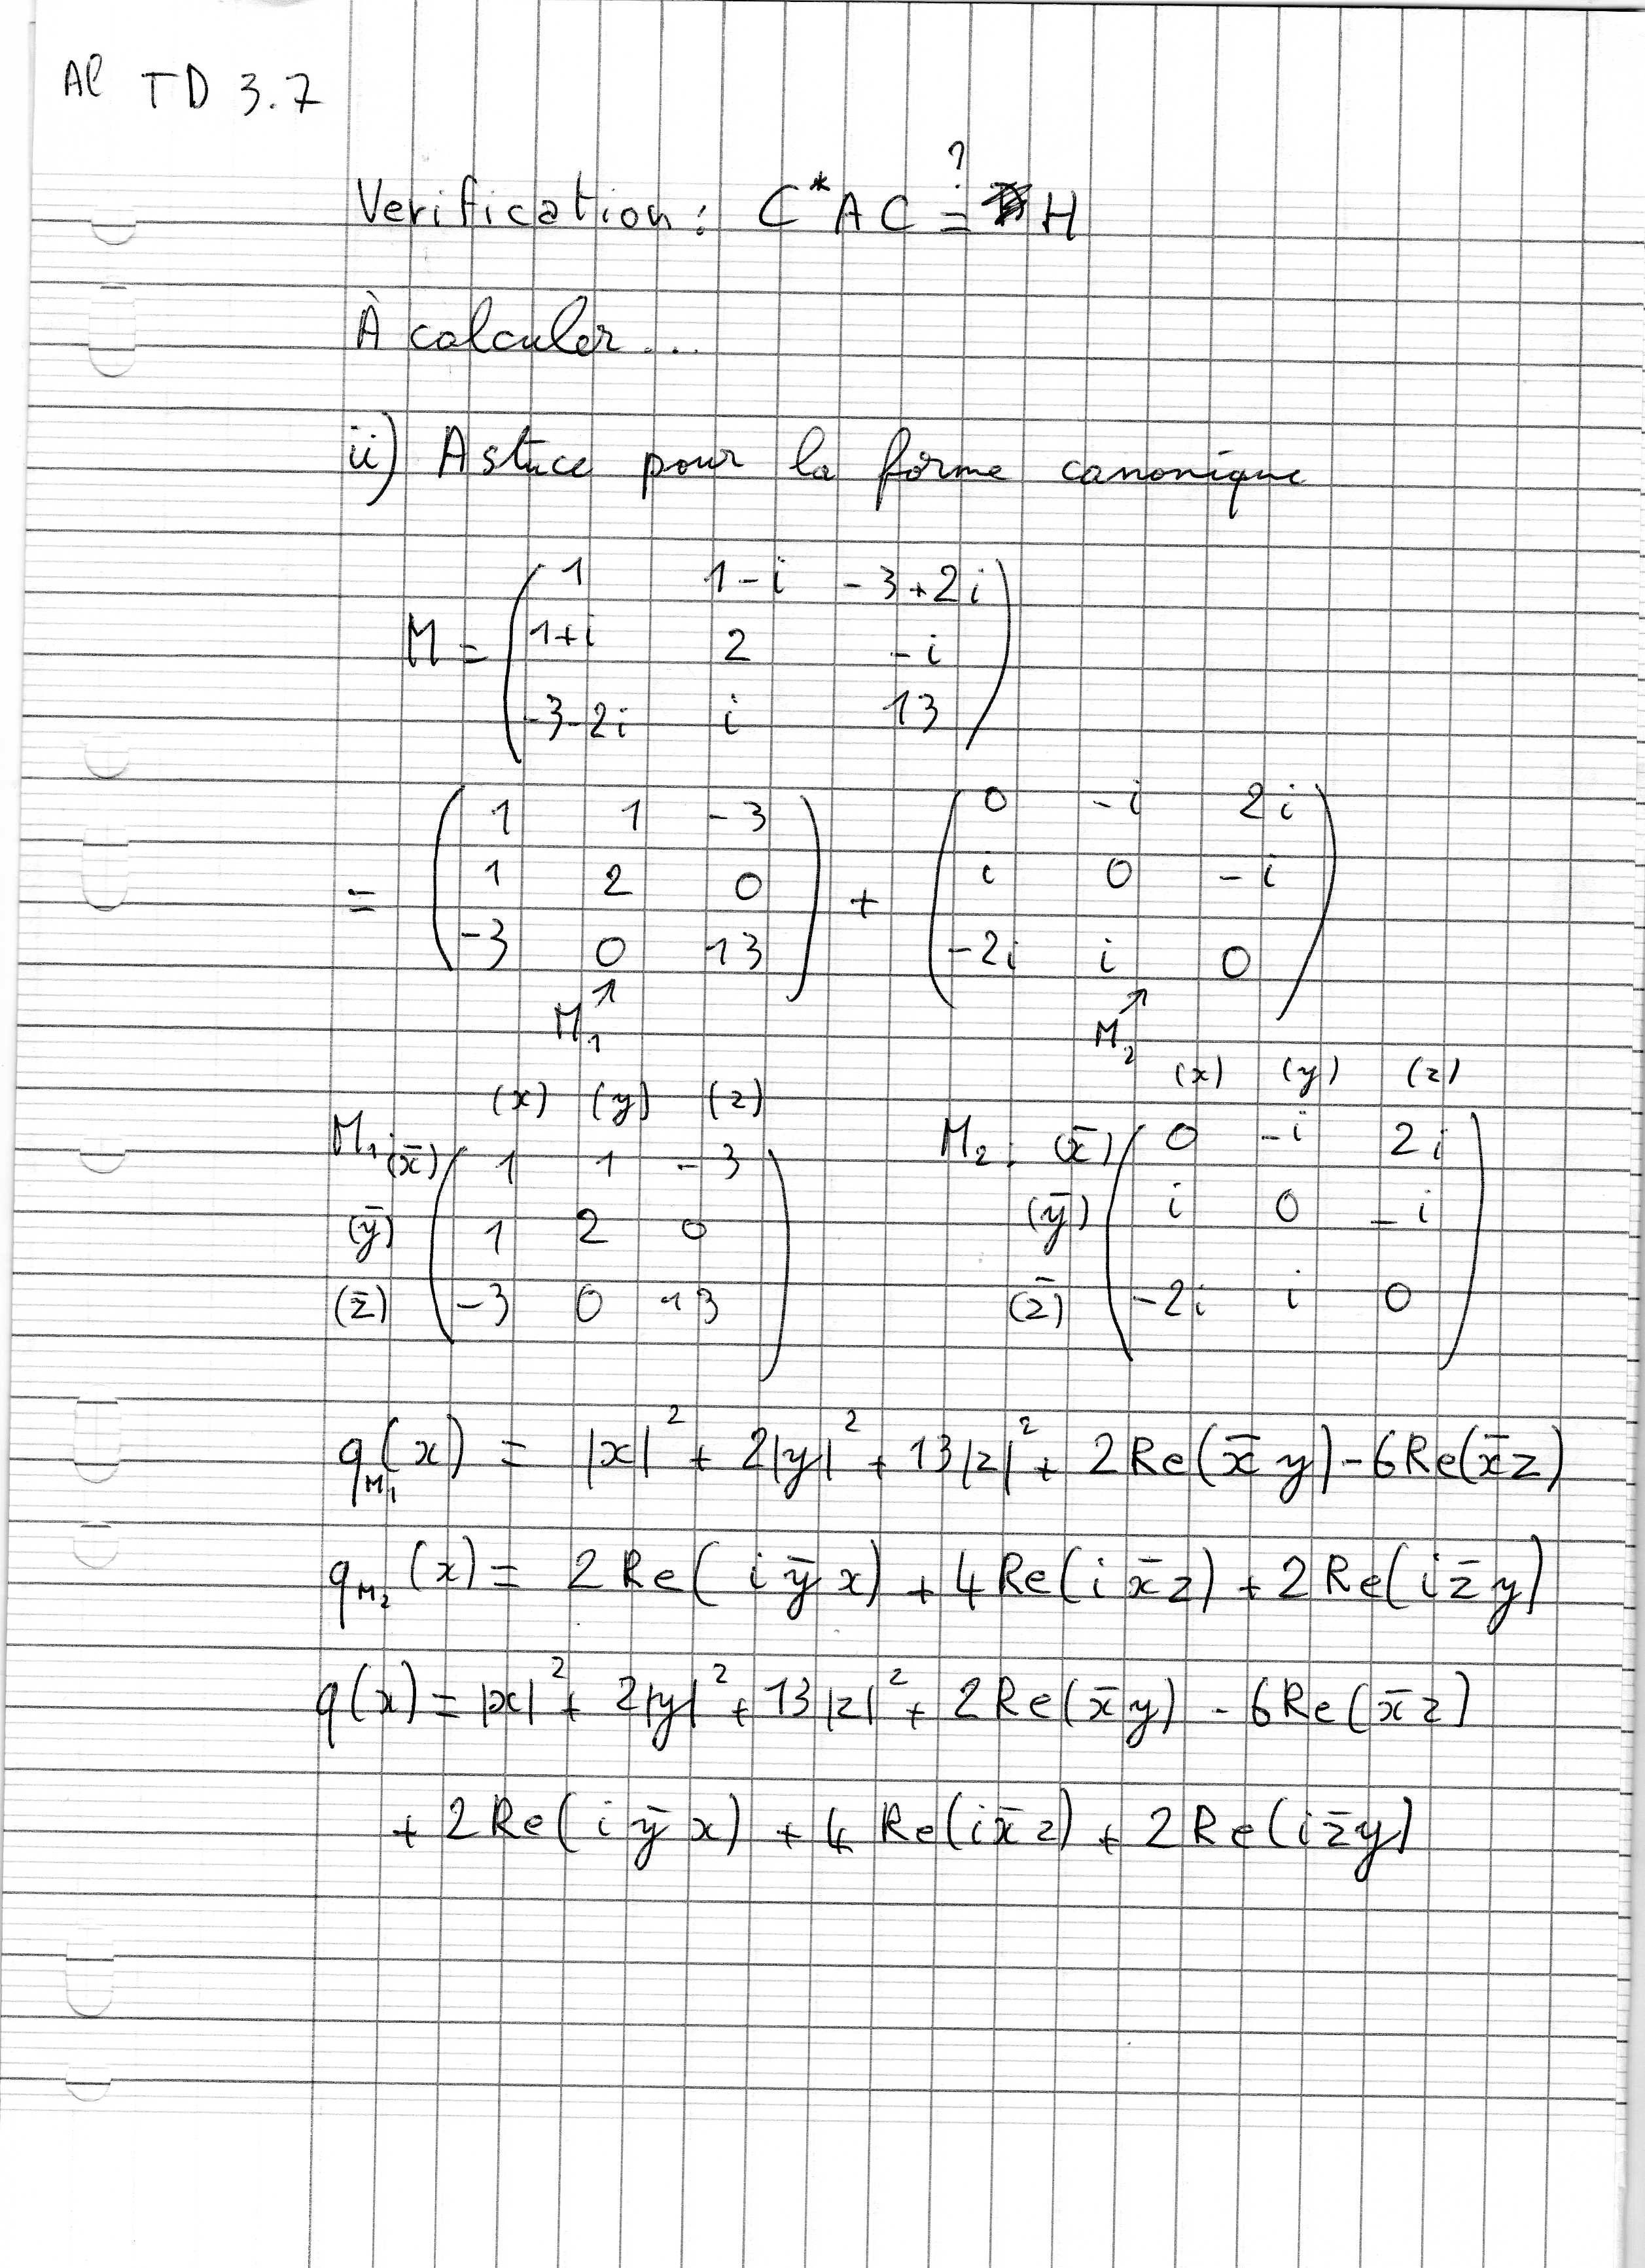 Al TD 3.7
?
Verification: C*AC = H
À calculer...
ii) Astuce pour la forme canonique
1 1-i -3+2i
M = 1+i 2 -i
-3-2i i 13
1 1 -3 0 -i 2i
= 1 2 0 + i 0 -i
-3 0 13 -2i i 0
M₁ M₂
(x) (y) (z) (x) (y) (z)
M₁: (x̄) 1 1 -3 M₂: (x̄) 0 -i 2i
(ȳ) 1 2 0 (ȳ) i 0 -i
(z̄) -3 0 13 (z̄) -2i i 0
q_M₁(x) = |x|² + 2|y|² + 13|z|² + 2Re(x̄y) - 6Re(x̄z)
q_M₂(x) = 2Re(iȳx) + 4Re(ix̄z) + 2Re(iz̄y)
q(x) = |x|² + 2|y|² + 13|z|² + 2Re(x̄y) - 6Re(x̄z)
+ 2Re(iȳx) + 4Re(ix̄z) + 2Re(iz̄y)